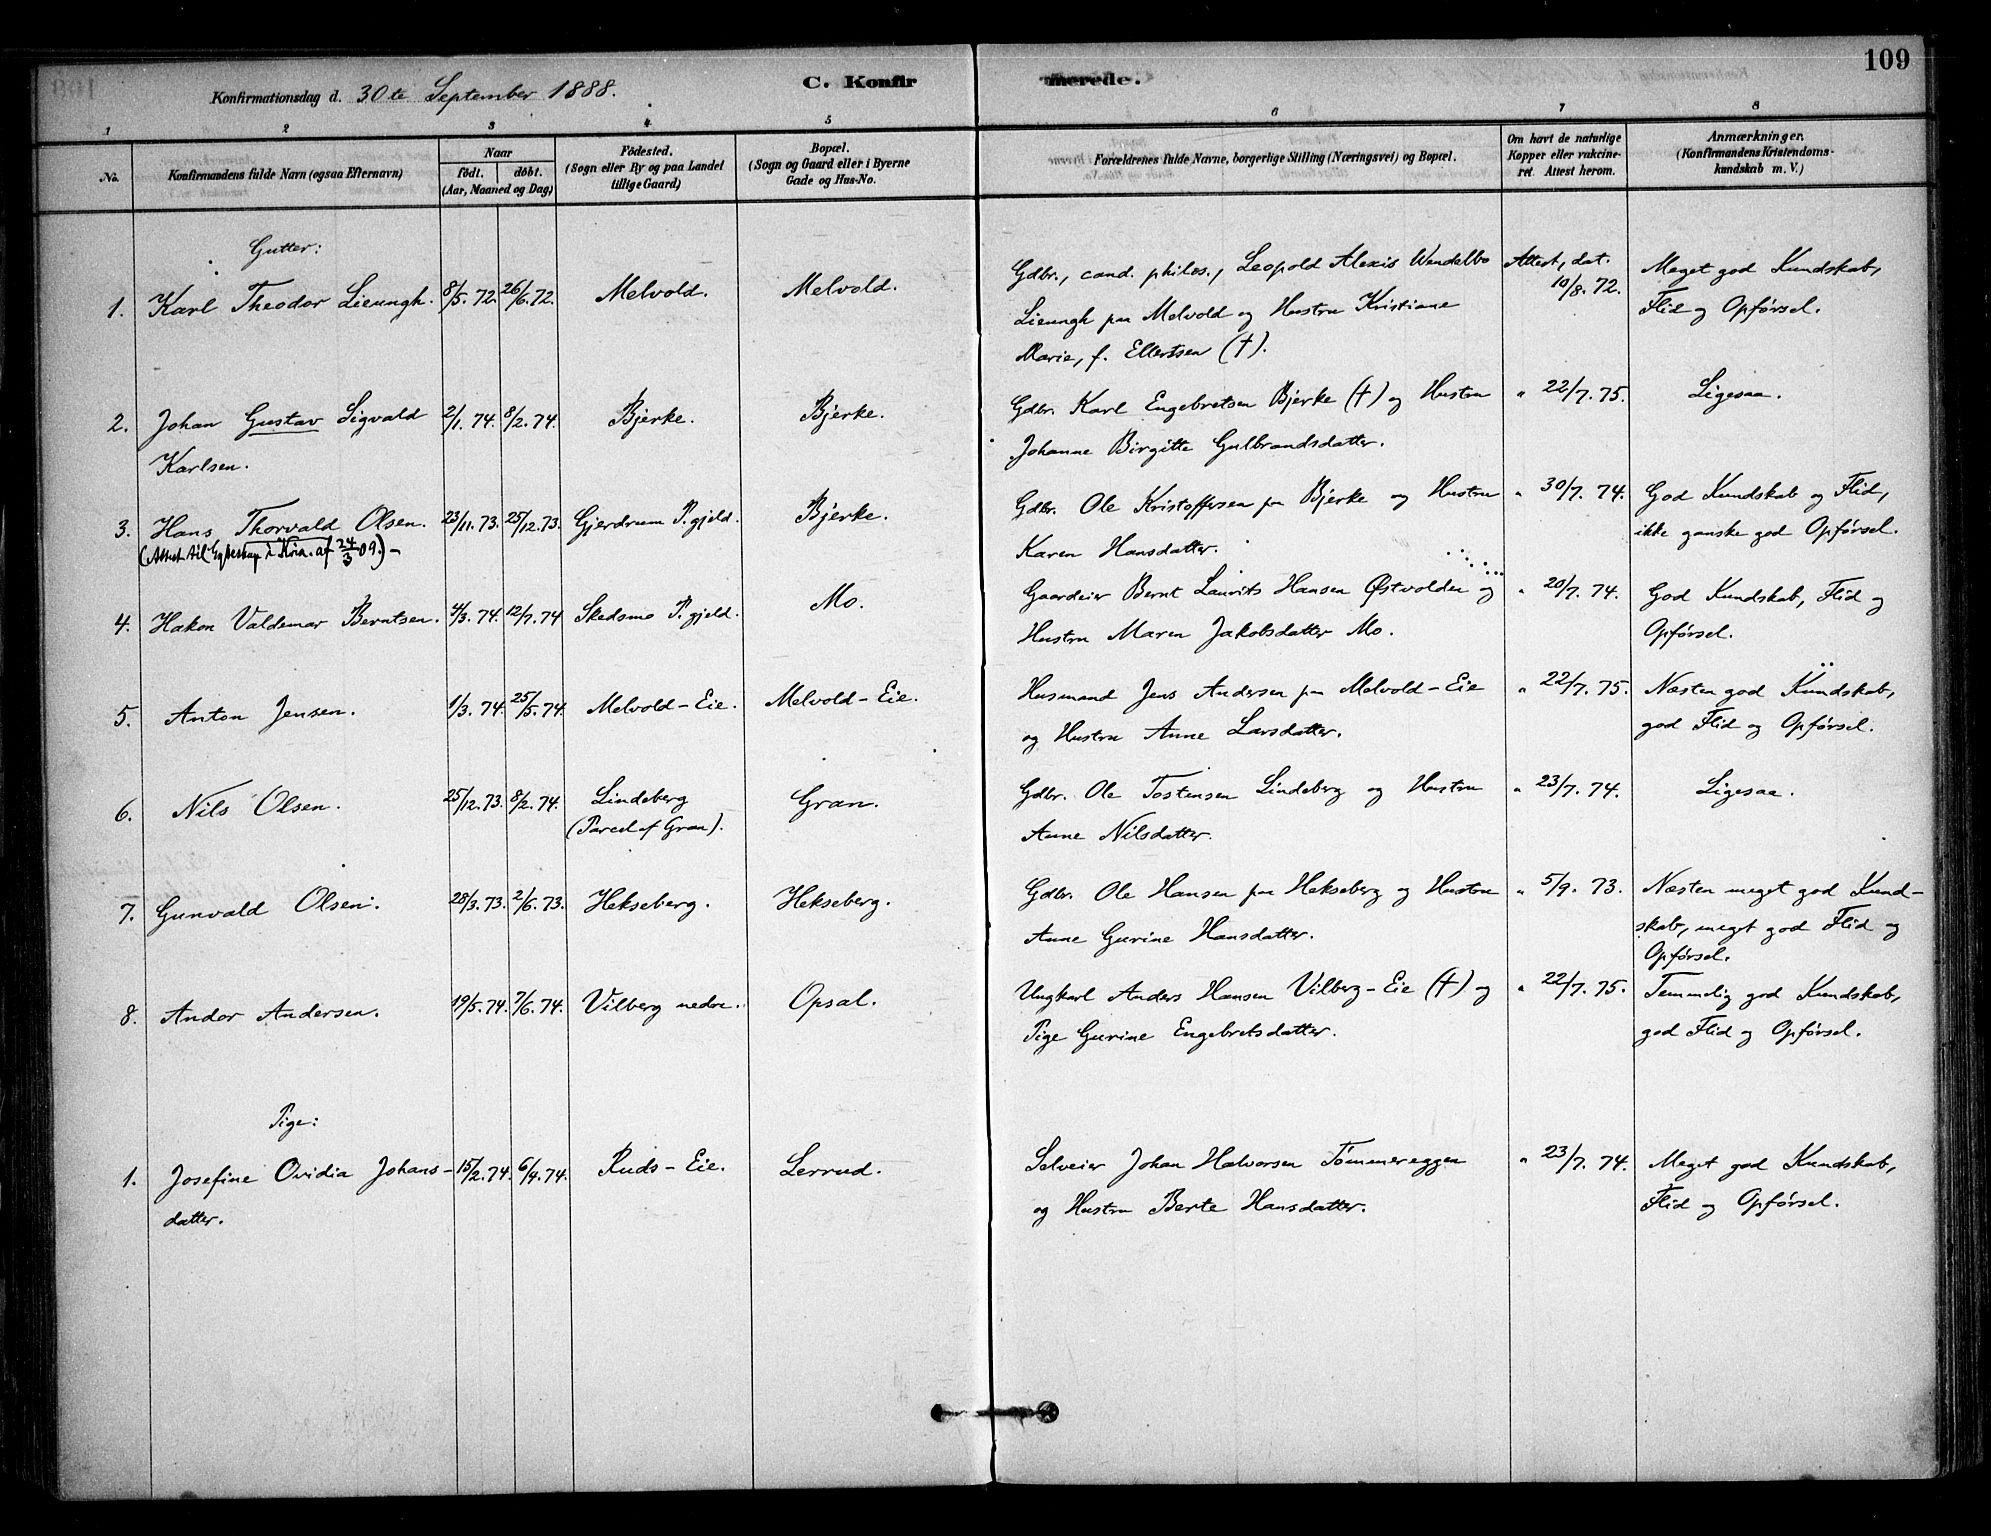 109
Konfirmationsdag d. 30te September 1888.
C. Konfirmerede.
1 2 3 4 5 6 7 8
No.
Konfirmandens fulde Navn (ogsaa Efternavn)
Naar
födt. döbt.
(Aar, Maaned og Dag)
Födested.
(Sogn eller By og paa Landet
tillige Gaard)
Bopæl.
(Sogn og Gaard eller i Byerne
Gade og Hus-No.
Forældrenes fulde Navne, borgerlige Stilling (Næringsvei) og Bopæl.
Om havt de naturlige
Kopper eller vakcine-
ret. Attest herom.
Anmærkninger.
(Konfirmandens Kristendoms-
kundskab m. V.)
Gutter:
1. Karl Theodor Lieungh. 8/5. 72. 26/6. 72. Melvold. Melvold. Gdbr., cand. philos., Leopold Alexis Wendelbo Attest, dat. Meget god Kundskab,
Lieungh paa Melvold og Hustru Kristiane 10/8. 72. Flid og Opførsel.
Marie, f. Ellertsen (†).
2. Johan Gustav Sigvald 2/1. 74. 8/2. 74. Bjerke. Bjerke. Gdbr. Karl Engebretsen Bjerke (†) og Hustru " 22/7. 75. Ligesaa.
Karlsen. Johanne Birgitte Gulbrandsdatter.
3. Hans Thorvald Olsen. 23/11. 73. 25/12. 73. Gjerdrum P. gjeld. Bjerke. Gdbr. Ole Kristoffersen paa Bjerke og Hustru " 30/7. 74. God Kundskab og Flid,
(Attest til Egteskap i Kria. af 24/3 09.) – Karen Hansdatter. ikke ganske god Opførsel.
4. Hakon Valdemar Berntsen. 4/3. 74. 12/7. 74 Skedsmo P. gjeld. Mo. Gaardeier Bernt Laurits Hansen Østvolden og " 20/7. 74. God Kundskab, Flid og
Hustru Maren Jakobsdatter Mo. Opførsel.
5. Anton Jensen. 1/3. 74. 25/5. 74. Melvold-Eie. Melvold-Eie. Husmand Jens Andersen paa Melvold-Eie " 22/7. 75. Næsten god Kundskab,
og Hustru Anne Larsdatter. god Flid og Opførsel.
6. Nils Olsen. 25/12. 73. 8/2. 74. Lindeberg Gran. Gdbr. Ole Tostensen Lindeberg og Hustru " 23/7. 74. Ligesaa.
(Parcel af Gran). Anne Nilsdatter.
7. Gunvald Olsen. 28/3. 73. 2/6. 73. Hekseberg. Hekseberg. Gdbr. Ole Hansen paa Hekseberg og Hustru " 5/9. 73. Næsten meget god Kund-
Anne Gurine Hansdatter. skab, meget god Flid og
Opførsel.
8. Andor Andersen. 19/5. 74. 7/6. 74. Vilberg nedre. Opsal. Ungkarl Anders Hansen Vilberg-Eie (†) og " 22/7. 75. Temmelig god Kundskab,
Pige Gurine Engebretsdatter. god Flid og Opførsel.
Pige:
1. Josefine Ovidia Johans- 15/2. 74. 6/4. 74. Ruds-Eie. Lerrud. Selveier Johan Halvorsen Tømmereggen " 23/7. 74. Meget god Kundskab,
datter. og Hustru Berte Hansdatter. Flid og Opførsel.